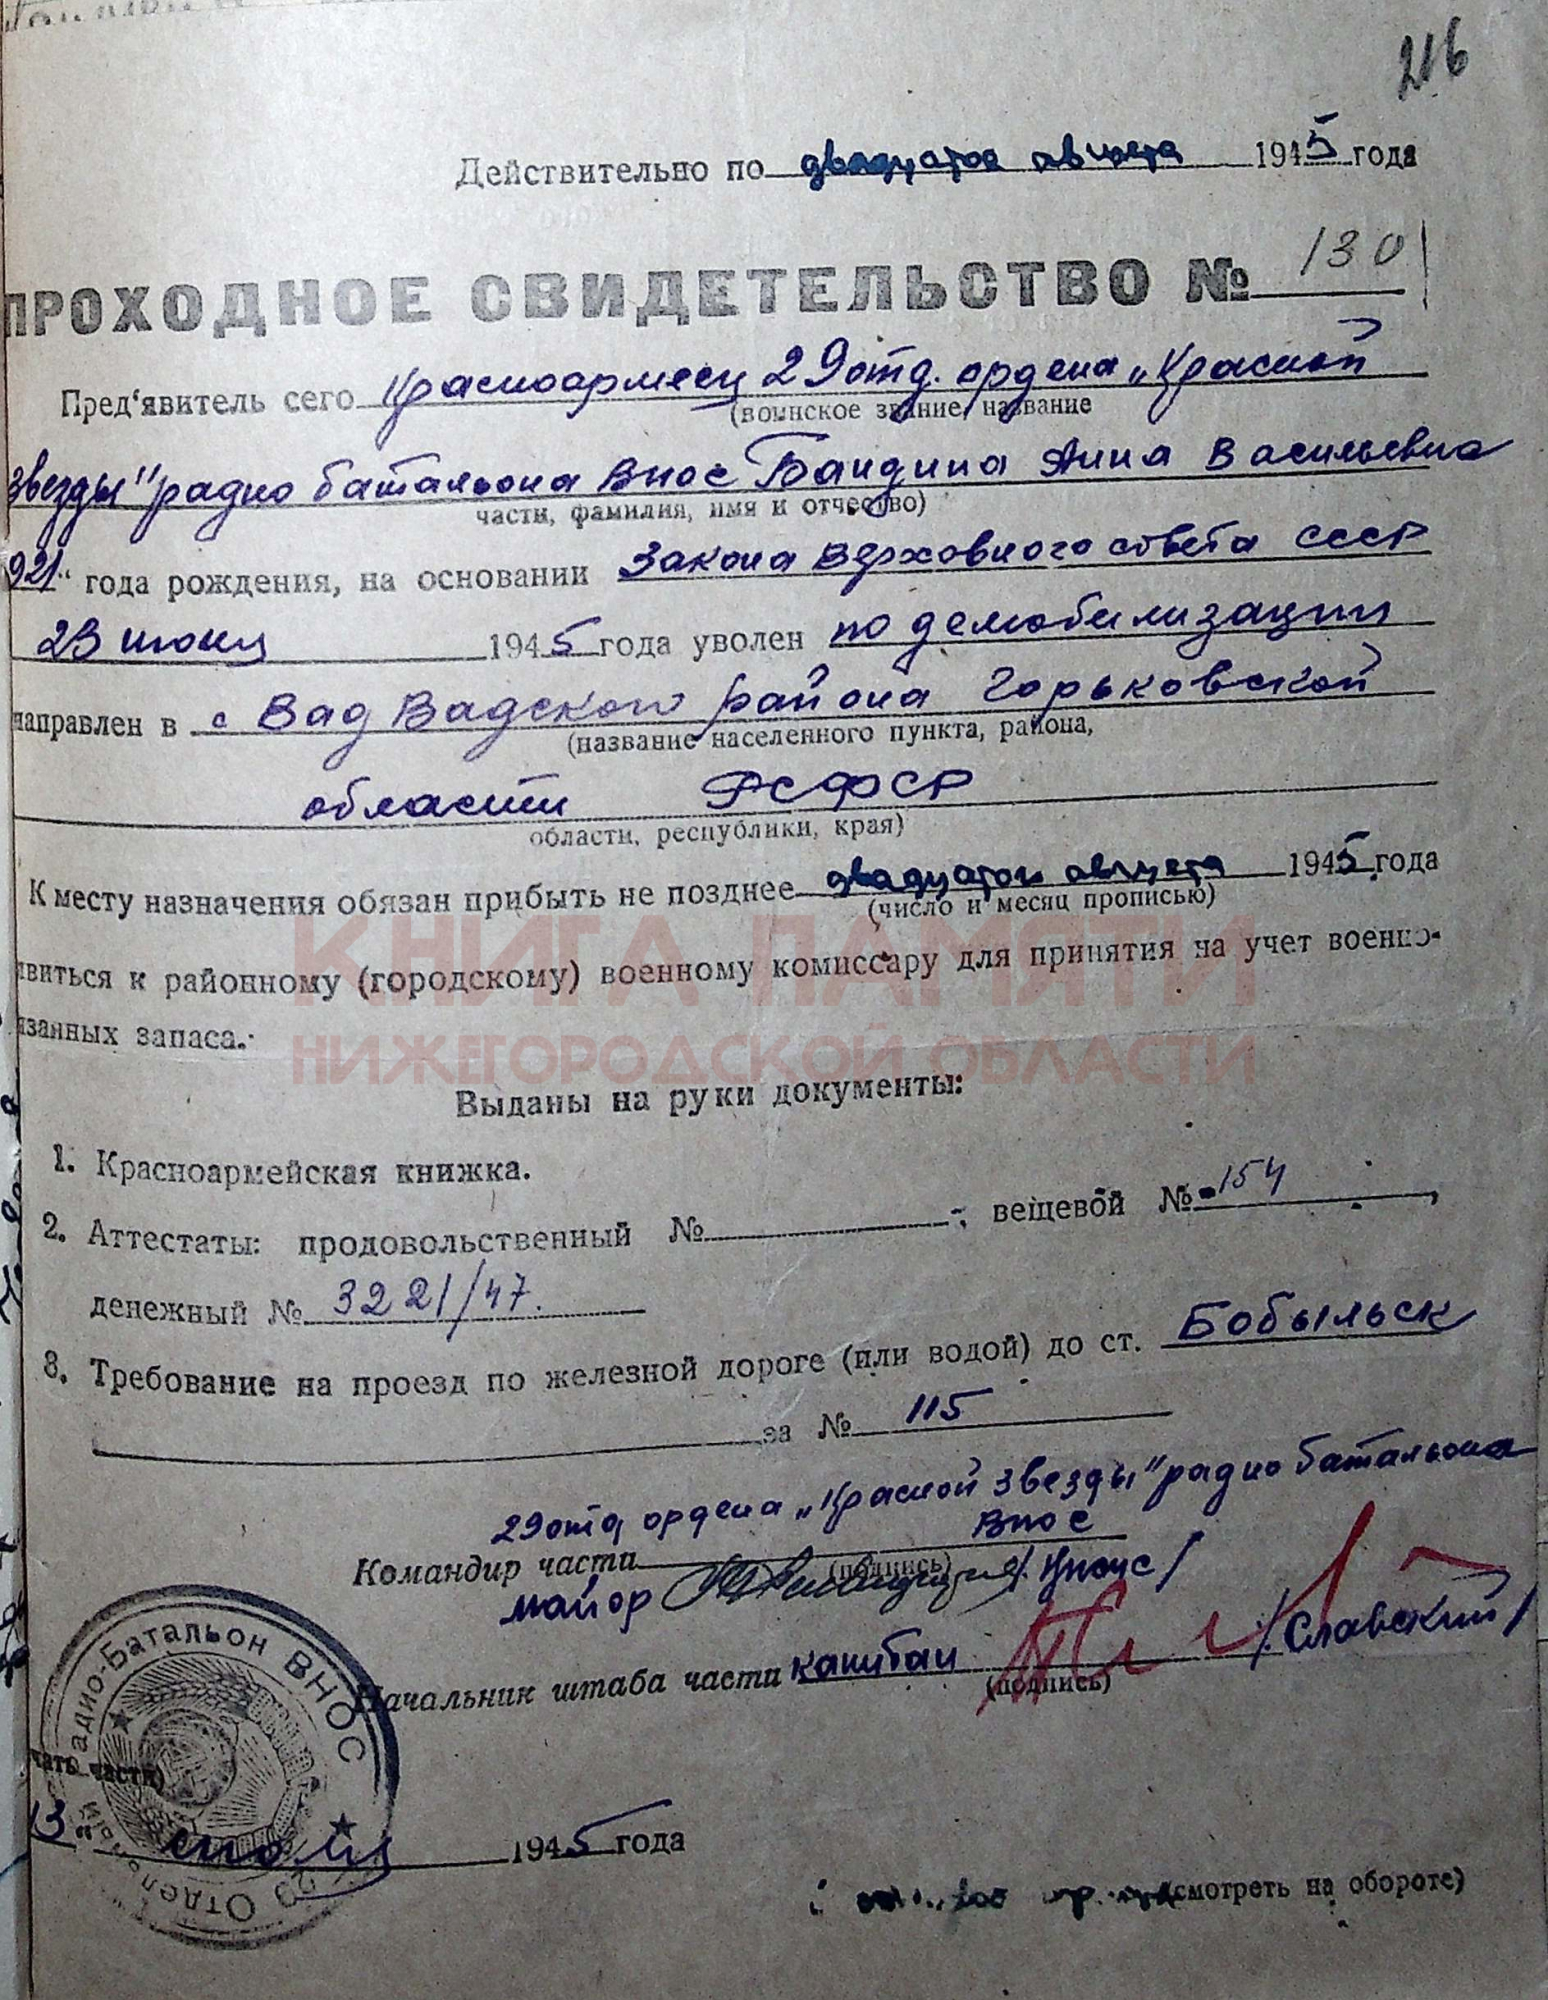 216
Действительно по двадцатое августа 1945 года
ПРОХОДНОЕ СВИДЕТЕЛЬСТВО № 130
Пред'явитель сего Красноармеец 29 отд. ордена „Красной
(воинское звание, название
звезды" радио батальона ВНОС Бандина Анна Васильевна
части, фамилия, имя и отчество)
921" года рождения, на основании Закона Верховного совета СССР
23 июня 1945 года уволен по демобилизации
направлен в с Вад Вадского района Горьковской
(название населенного пункта, района,
области РСФСР
области, республики, края)
К месту назначения обязан прибыть не позднее двадцатого августа 1945 года
(число и месяц прописью)
явиться к районному (городскому) военному комиссару для принятия на учет военно-
язанных запаса.
КНИГА ПАМЯТИ
НИЖЕГОРОДСКОЙ ОБЛАСТИ
Выданы на руки документы:
1. Красноармейская книжка.
2. Аттестаты: продовольственный № - ; вещевой № 154,
денежный № 3221/47.
3. Требование на проезд по железной дороге (или водой) до ст. Бобыльск
за № 115
29 отд ордена „Красной Звезды" радио батальона
ВНОС
Командир части (подпись)
майор
Начальник штаба части капитан /Славский/
(подпись)
Радио-Батальон ВНОС
29 Отдельный
чать части)
13" июля 1945 года
(смотреть на обороте)